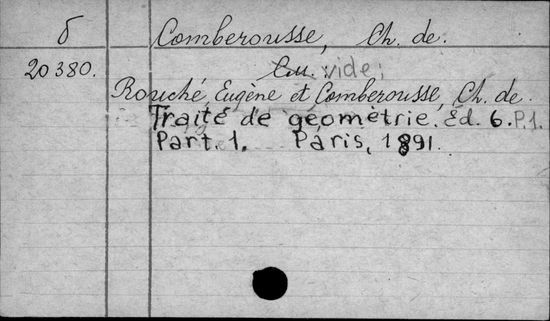 б Comberousse, Ch. de.
20380. См. vide:
Rouché, Eugène et Comberousse, Ch. de.
Traité de géométrie. Ed. 6. P. 1.
Part. 1. Paris, 1891.